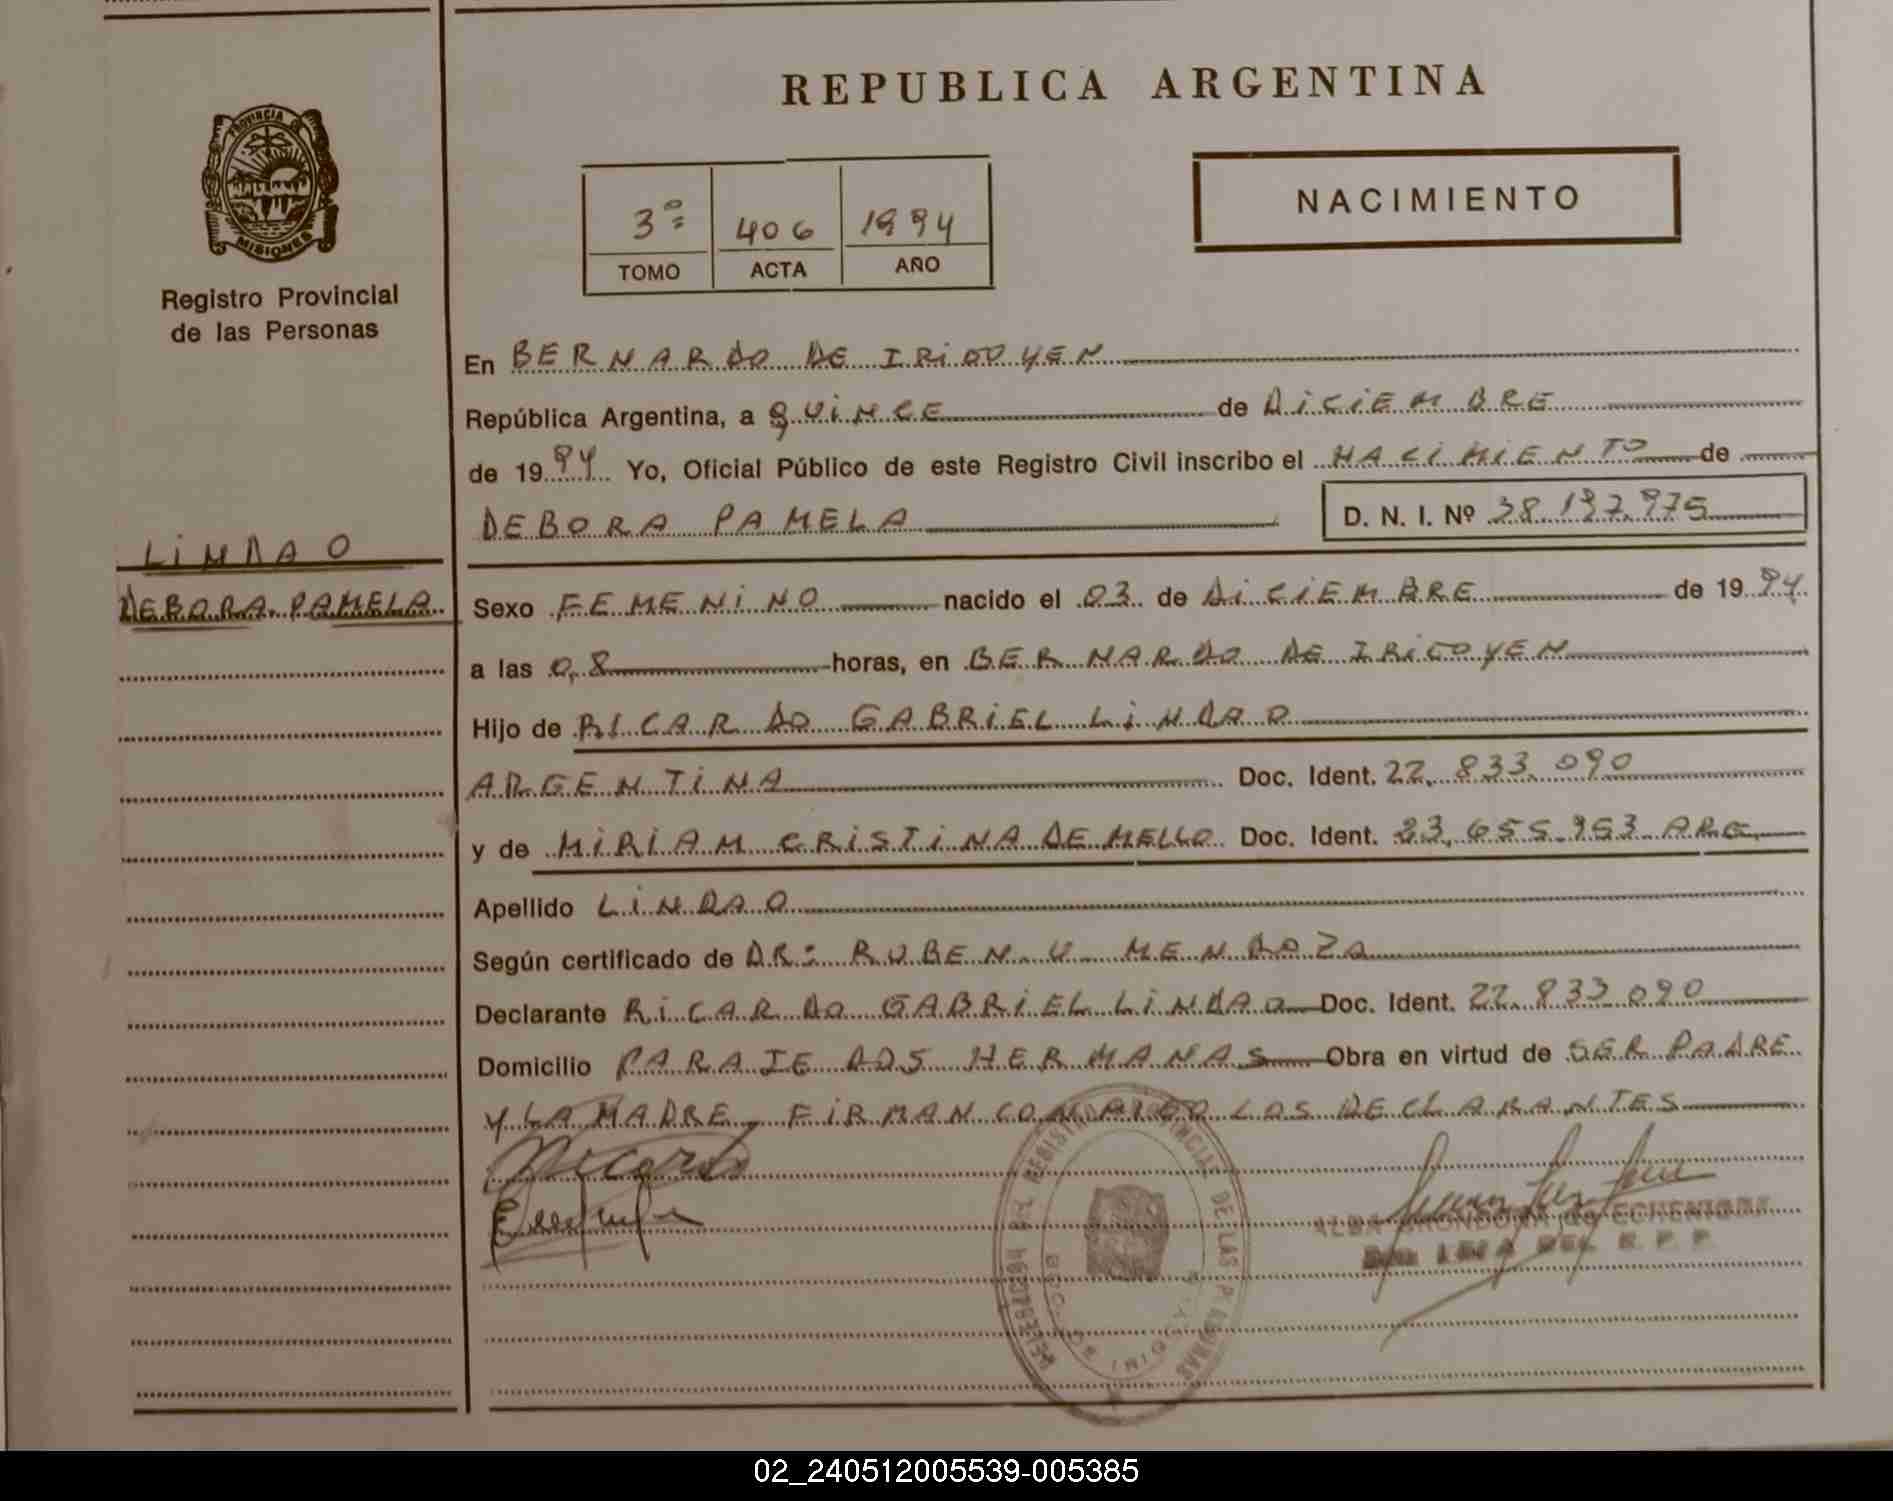 REPUBLICA ARGENTINA
PROVINCIA DE
MISIONES
Registro Provincial
de las Personas
3º 406 1994
TOMO ACTA AÑO
NACIMIENTO
En BERNARDO DE IRIGOYEN
República Argentina, a QUINCE de DICIEMBRE
de 1994 Yo, Oficial Público de este Registro Civil inscribo el NACIMIENTO de
DEBORA PAMELA D. N. I. Nº 38.197.975
LINDAO
DEBORA PAMELA
Sexo FEMENINO nacido el 03 de DICIEMBRE de 1994
a las 0,8 horas, en BERNARDO DE IRIGOYEN
Hijo de RICARDO GABRIEL LINDAO
ARGENTINA Doc. Ident. 22.833.090
y de MIRIAM CRISTINA DE MELLO Doc. Ident. 23.655.953 ARG.
Apellido LINDAO
Según certificado de DR: RUBEN U MENDOZA
Declarante RICARDO GABRIEL LINDAO Doc. Ident. 22.833.090
Domicilio PARAJE DOS HERMANAS Obra en virtud de SER PADRE
Y LA MADRE, FIRMAN CONMIGO LOS DECLARANTES
Ricardo
DEL REGISTRO PROVINCIAL DE LAS PERSONAS
ALBA DE ECHENIQUE
DEL R. P. P.
02_240512005539-005385